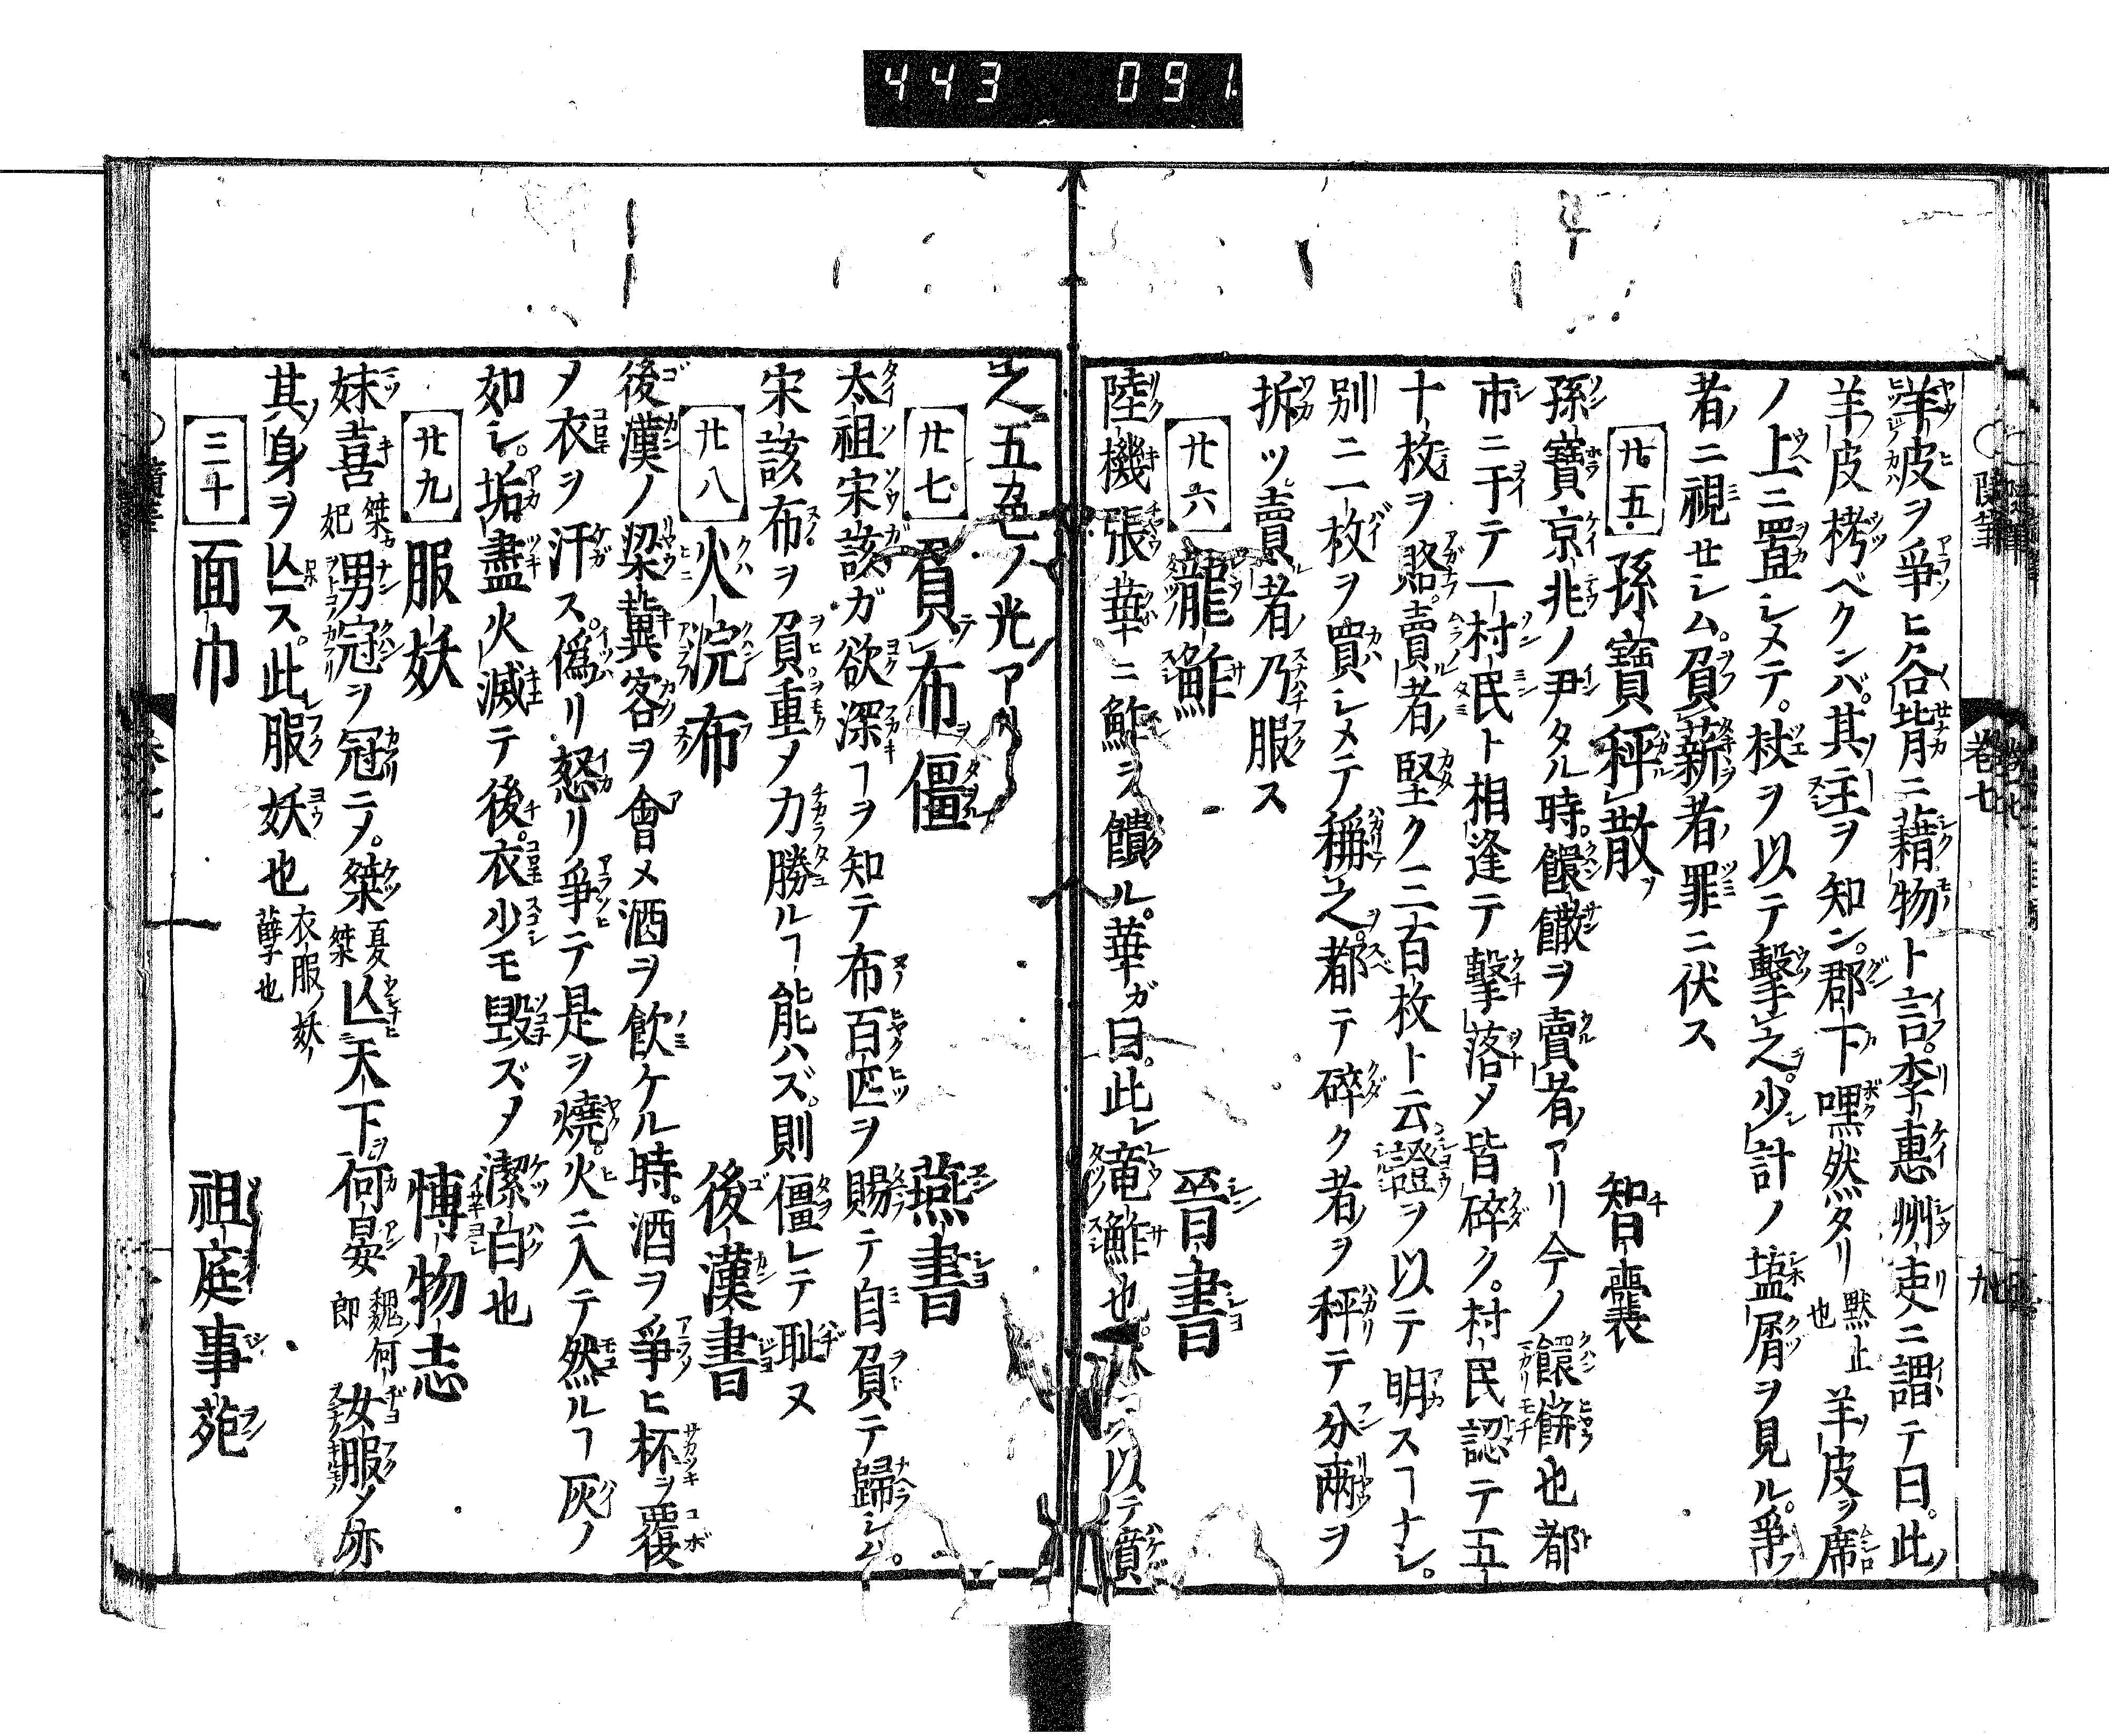 443 091
羊皮ヲ爭ヒ各背ニ藉物ト言。李惠州吏ニ謂テ曰。此
羊皮栲ベクンバ。其主ヲ知ン。郡下嘿然タリ 默止也 羊皮ヲ席
ノ上ニ置シメテ。杖ヲ以テ擊之。少計ノ塩屑ヲ見ル。爭
者ニ視セシム。負薪者罪ニ伏ス
廿五 孫寶秤散 智囊
孫寶京兆ノ尹タル時。饆饊ヲ賣者アリ今ノ饆餅也都
市ニ于テ一村民ト相逢テ擊落メ皆碎ク。村民認テ五
十枚ヲ賂。賣者堅ク三百枚ト云。證ヲ以テ明スヿナシ。
別ニ一枚ヲ買シメテ稱之。都テ碎ク者ヲ秤テ分兩ヲ
拆ツ。賣者乃服ス
廿六 龍鮓 晉書
陸機張華ニ鮓ヲ饋ル。華ガ曰。此レ竜鮓也。以テ
之五色ノ光アリ
廿七 負布僵 燕書
太祖宋該ガ欲深ヿヲ知テ布百匹ヲ賜テ自負テ歸シム。
宋該布ヲ負重メ力勝ルヿ能ハズ。則僵レテ耻ヌ
廿八 火浣布 後漢書
後漢ノ梁冀客ヲ會メ酒ヲ飲ケル時。酒ヲ爭ヒ杯ヲ覆
ノ衣ヲ汗ス。偽リ怒リ爭テ是ヲ燒。火ニ入テ然ルヿ灰ノ
如シ。垢盡火滅テ後。衣少モ毀ズメ潔白也
廿九 服妖 博物志
妹喜 桀カ妃 男冠ヲ冠ニメ。桀 夏桀 亾天下。何晏 魏ノ何郎 女服メ亦
其身ヲ亾ス。此服妖也 衣服ノ妖孽也
三十 面巾 祖庭事苑
卷七